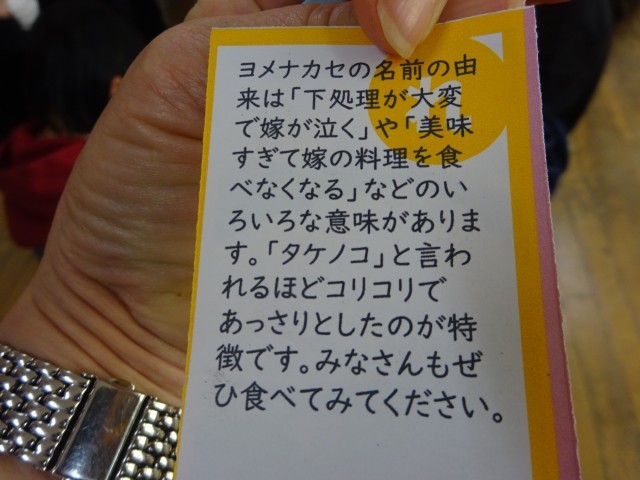 ヨメナカセの名前の由
来は「下処理が大変
で嫁が泣く」や「美味
すぎて嫁の料理を食
べなくなる」などのい
ろいろな意味がありま
す。「タケノコ」と言わ
れるほどコリコリで
あっさりとしたのが特
徴です。みなさんもぜ
ひ食べてみてください。